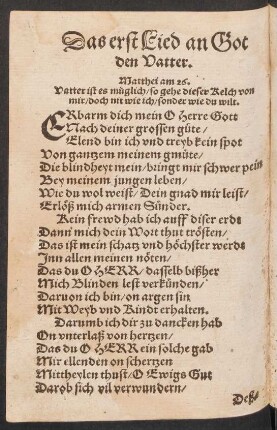 Das erst Lied an Got
den Vatter.
Matthei am 26.
Vatter ist es müglich/so gehe dieser Kelch von
mir/doch nit wie ich/sonder wie du wilt.
ERbarm dich mein O Herre Gott
Nach deiner grossen güte/
Elend bin ich vnd treyb kein spot
Von gantzem meinem gmüte/
Die blindheyt mein/bringt mir schwer pein
Bey meinem jungen leben/
Wie du wol weist/Dein gnad mir leist/
Erlöß mich armen Sünder.
Kein frewd hab ich auff diser erdt
Dann mich dein Wort thut trösten/
Das ist mein schatz vnd höchster werdt
Inn allen meinen nöten/
Das du O HERR/dasselb bißher
Mich Blinden lest verkünden/
Daruon ich bin/on argen sin
Mit Weyb vnd Kindt erhalten.
Darumb ich dir zu dancken hab
On vnterlaß von hertzen/
Das du O HERR ein solche gab
Mir ellenden on schertzen
Mittheylen thust/O Ewigs Gut
Darob sich vil verwundern/
Deß⸗